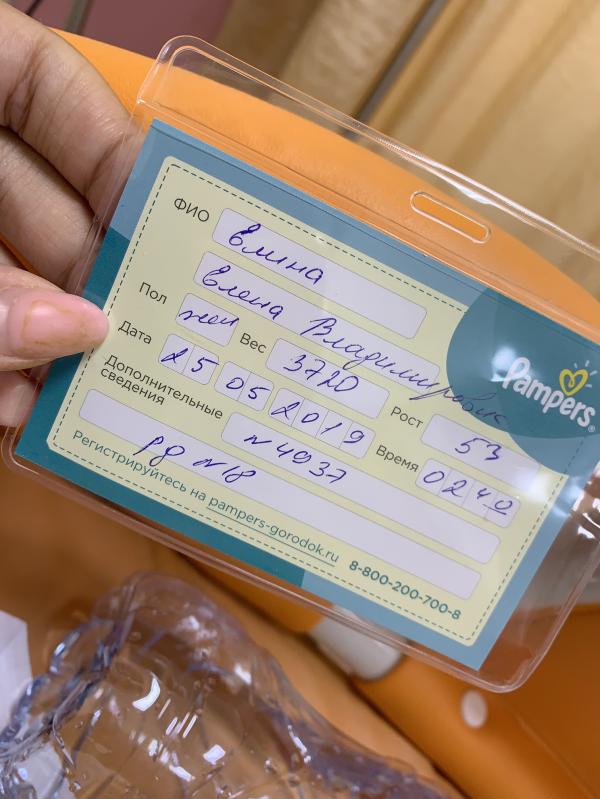 ФИО Елена
Елена Владимировна
Пол жен Вес 3720 Рост 53
Дата 25 05 2019 Время 0240
Дополнительные сведения N 4937
рд N 18
Регистрируйтесь на pampers-gorodok.ru 8-800-200-700-8
Pampers